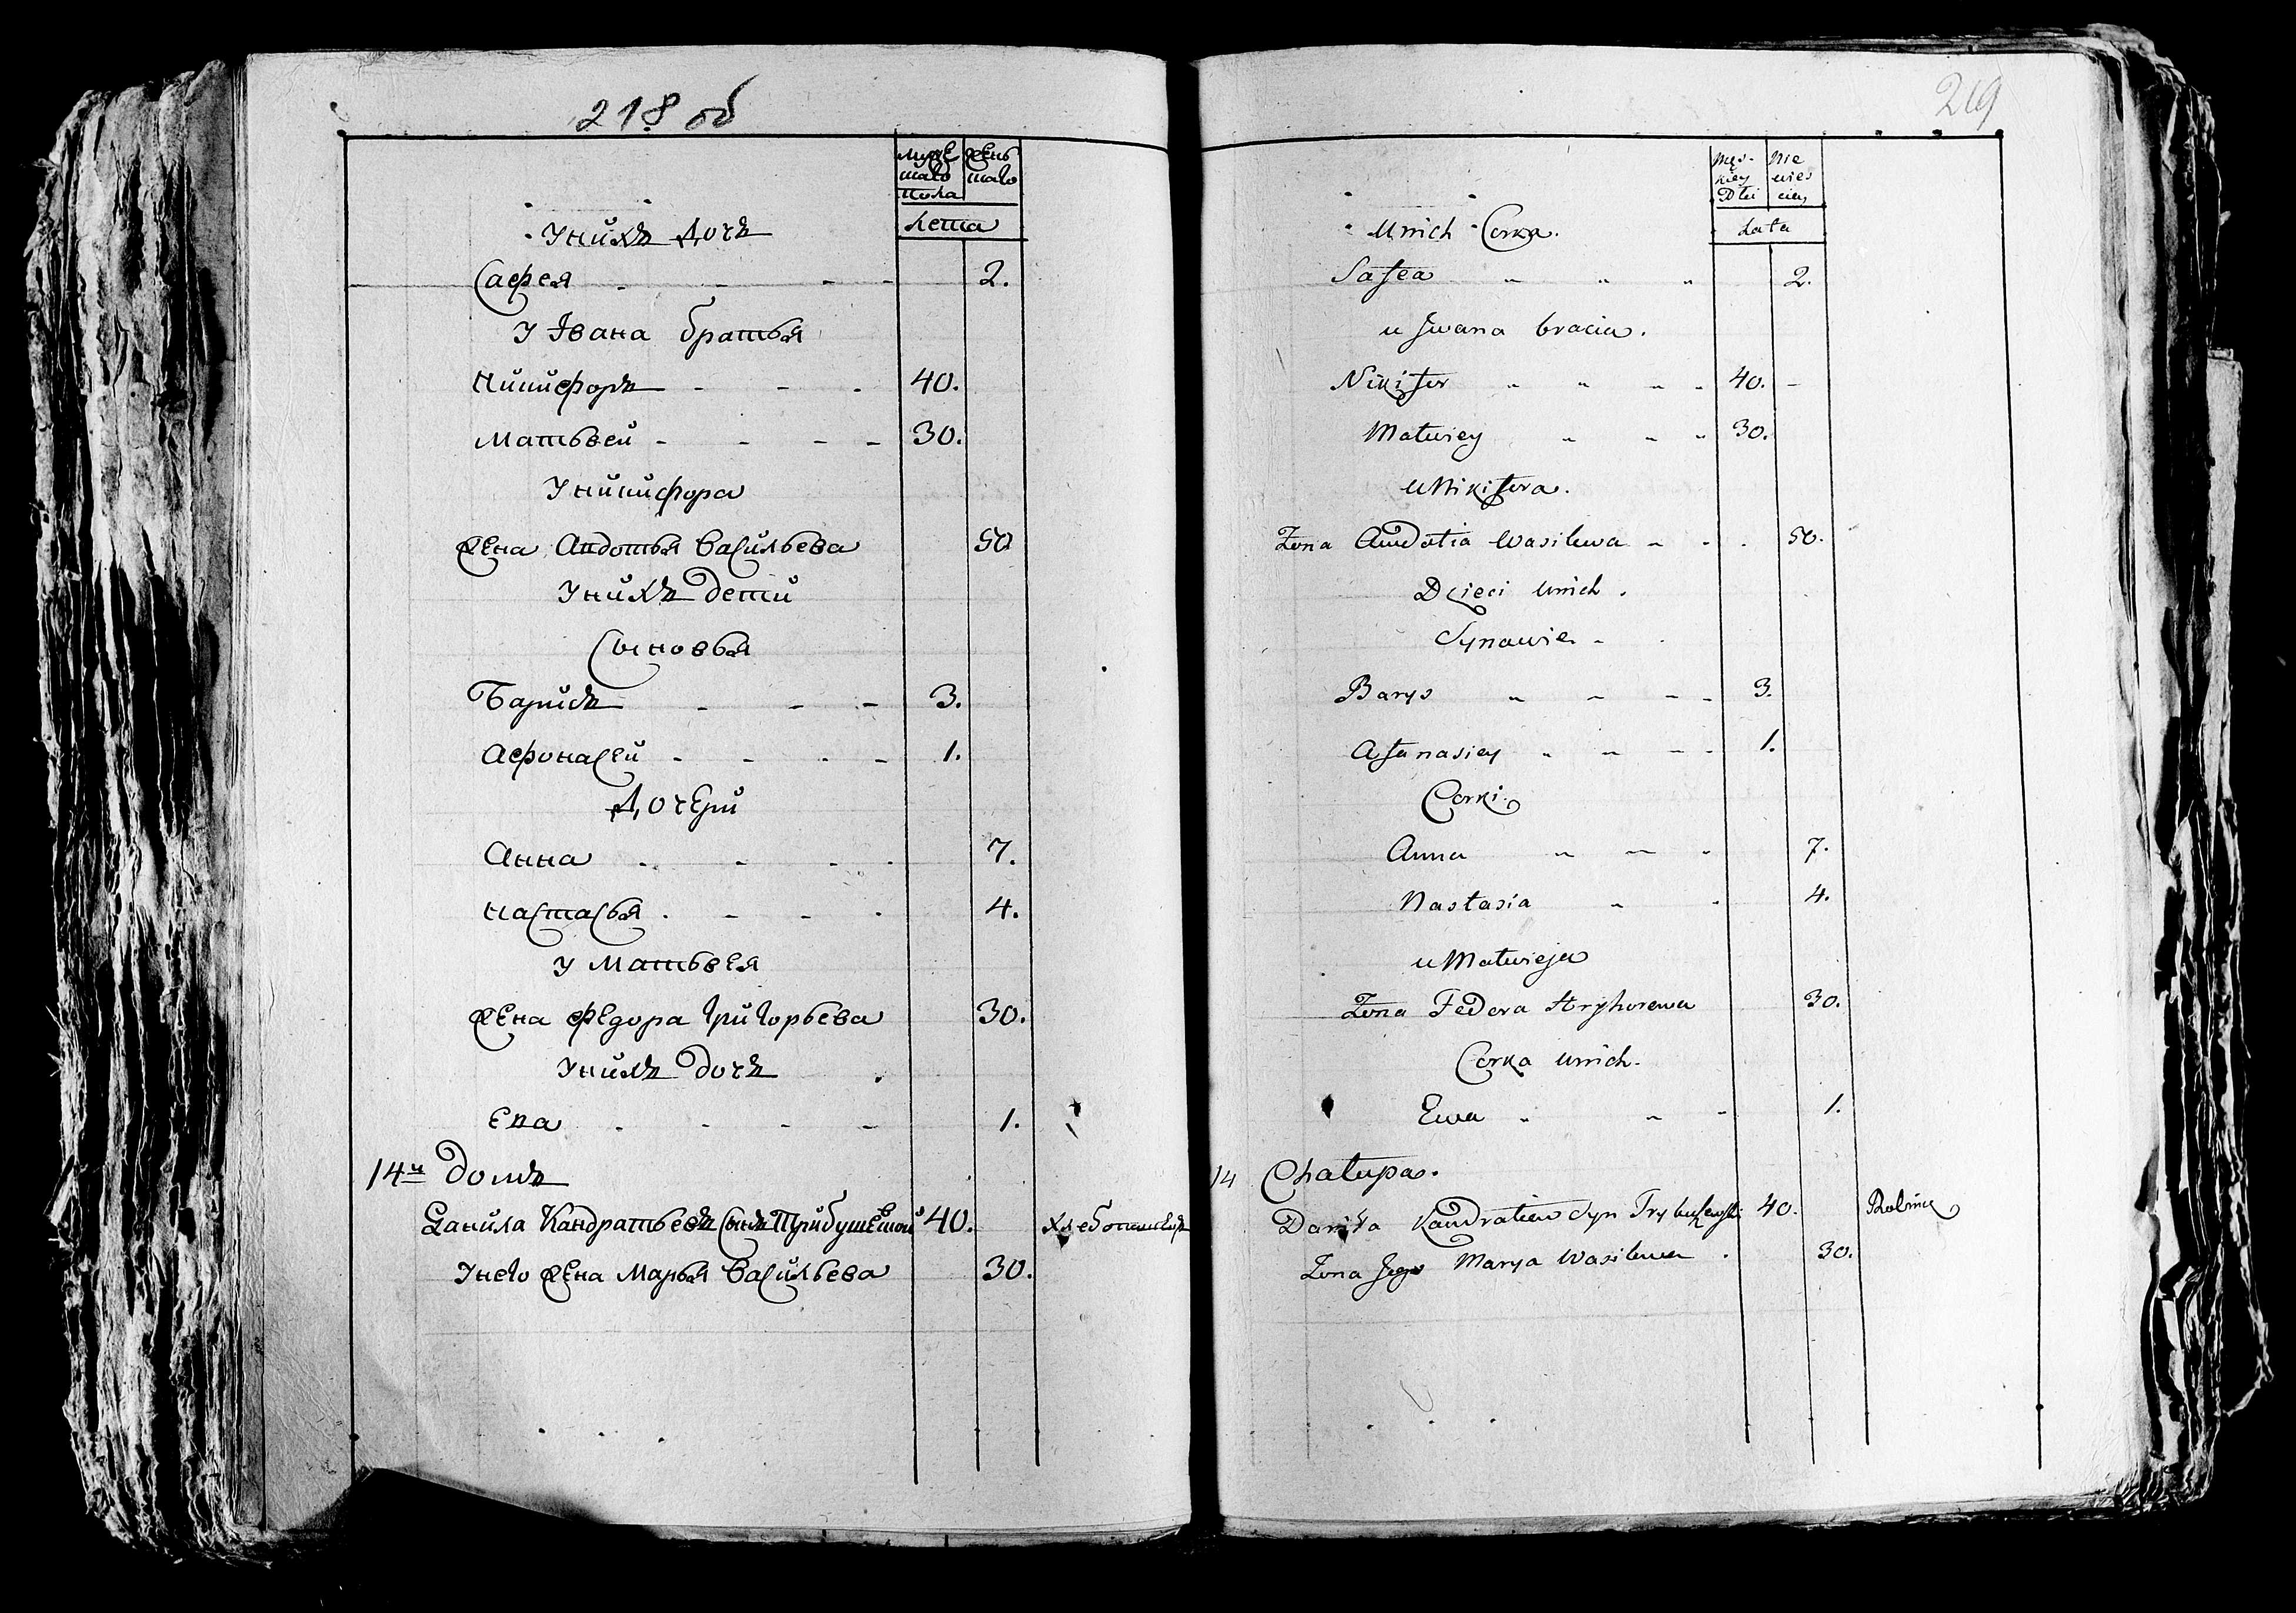 218 об
муже женъ
скаго скаго
пола
лета
У нихъ дочь
Сафея 2.
У Івана братья
Никифоръ 40.
Матвей 30.
У Никифора
Жена Авдотья Васильева 50
У нихъ дети
Сыновья
Барисъ 3.
Афонасей 1.
Дочери
Анна 7.
Настасья 4.
У Матвея
Жена Федора Григорьева 30.
У нихъ дочь
Ева 1.
14й домъ
Данила Кандратьевъ Сынъ 40.
У него Жена Марья Васильева 30.
219
męs- nie
kiey wies
Płci ciey
Lata
U nich Corka.
Safea 2.
u Jwana bracia.
Nikifor 40.
Matwiey 30.
u Nikifora.
Zona Awdotia Wasilewa 50.
Dzieci u nich.
Synowie
Barys 3.
Afanasiey 1.
Corki.
Anna 7.
Nastasia 4.
u Matwieja
Zona Fedora Hryhorewa 30.
Corka u nich.
Ewa 1.
14 Chałupa.
Daniła Kandratiew Syn 40. Rolnik
Zona Jego Marya Wasilewa 30.